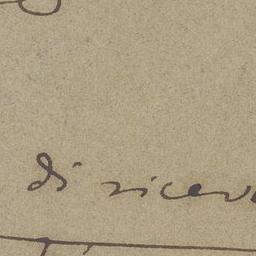 di ricev